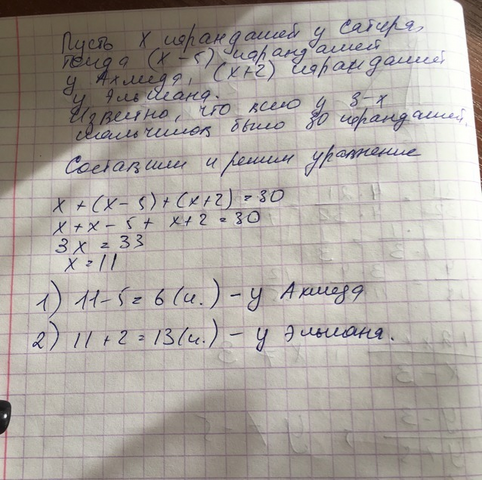 Пусть x карандашей у Сатира,
тогда (x-5) карандашей
у Ахмеда, (x+2) карандашей
у Эльмана.
Известно, что всего у 3-х
мальчиков было 30 карандашей.
Составим и решим уравнение
x + (x-5) + (x+2) = 30
x + x - 5 + x + 2 = 30
3x = 33
x = 11
1) 11-5 = 6 (к.) - у Ахмеда
2) 11 + 2 = 13 (к.) - у Эльмана.